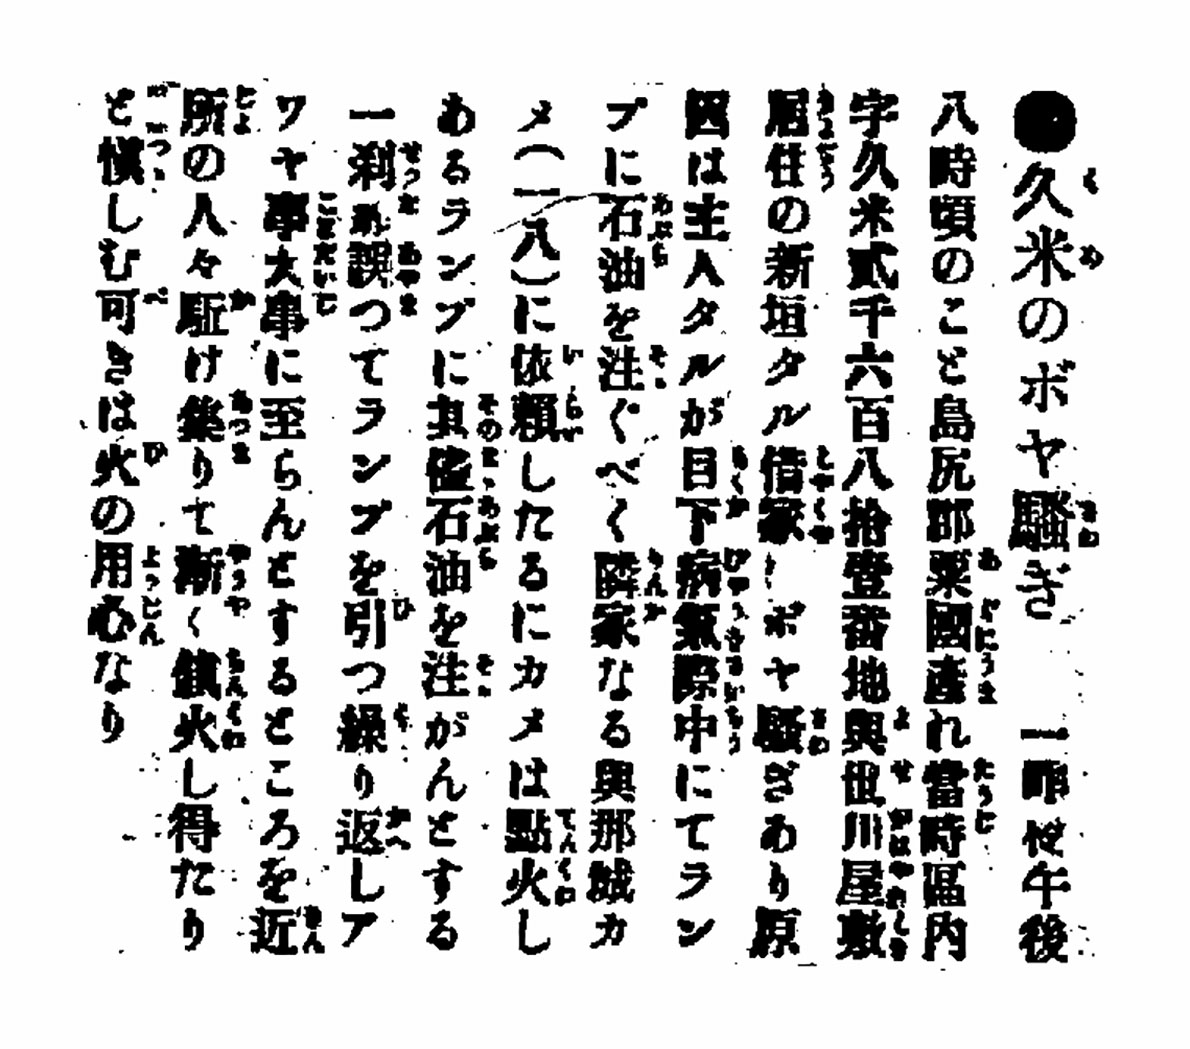 ●久米のボヤ騷ぎ　一昨夜午後
八時頃のこと島尻郡粟國產れ當時區内
字久米貳千六百八拾壹番地與世川屋敷
居住の新垣タル借家しボヤ騷ぎあり原
因は主人タルが目下病氣際中にてラン
プに石油を注ぐべく隣家なる與那城カ
メ(一八)に依賴したるにカメは點火し
あるランプに其儘石油を注がんとする
一刹那誤つてランプを引つ繰り返しア
ワヤ事大事に至らんとするところを近
所の人々駈け集りて漸く鎭火し得たり
と愼しむ可きは火の用心なり